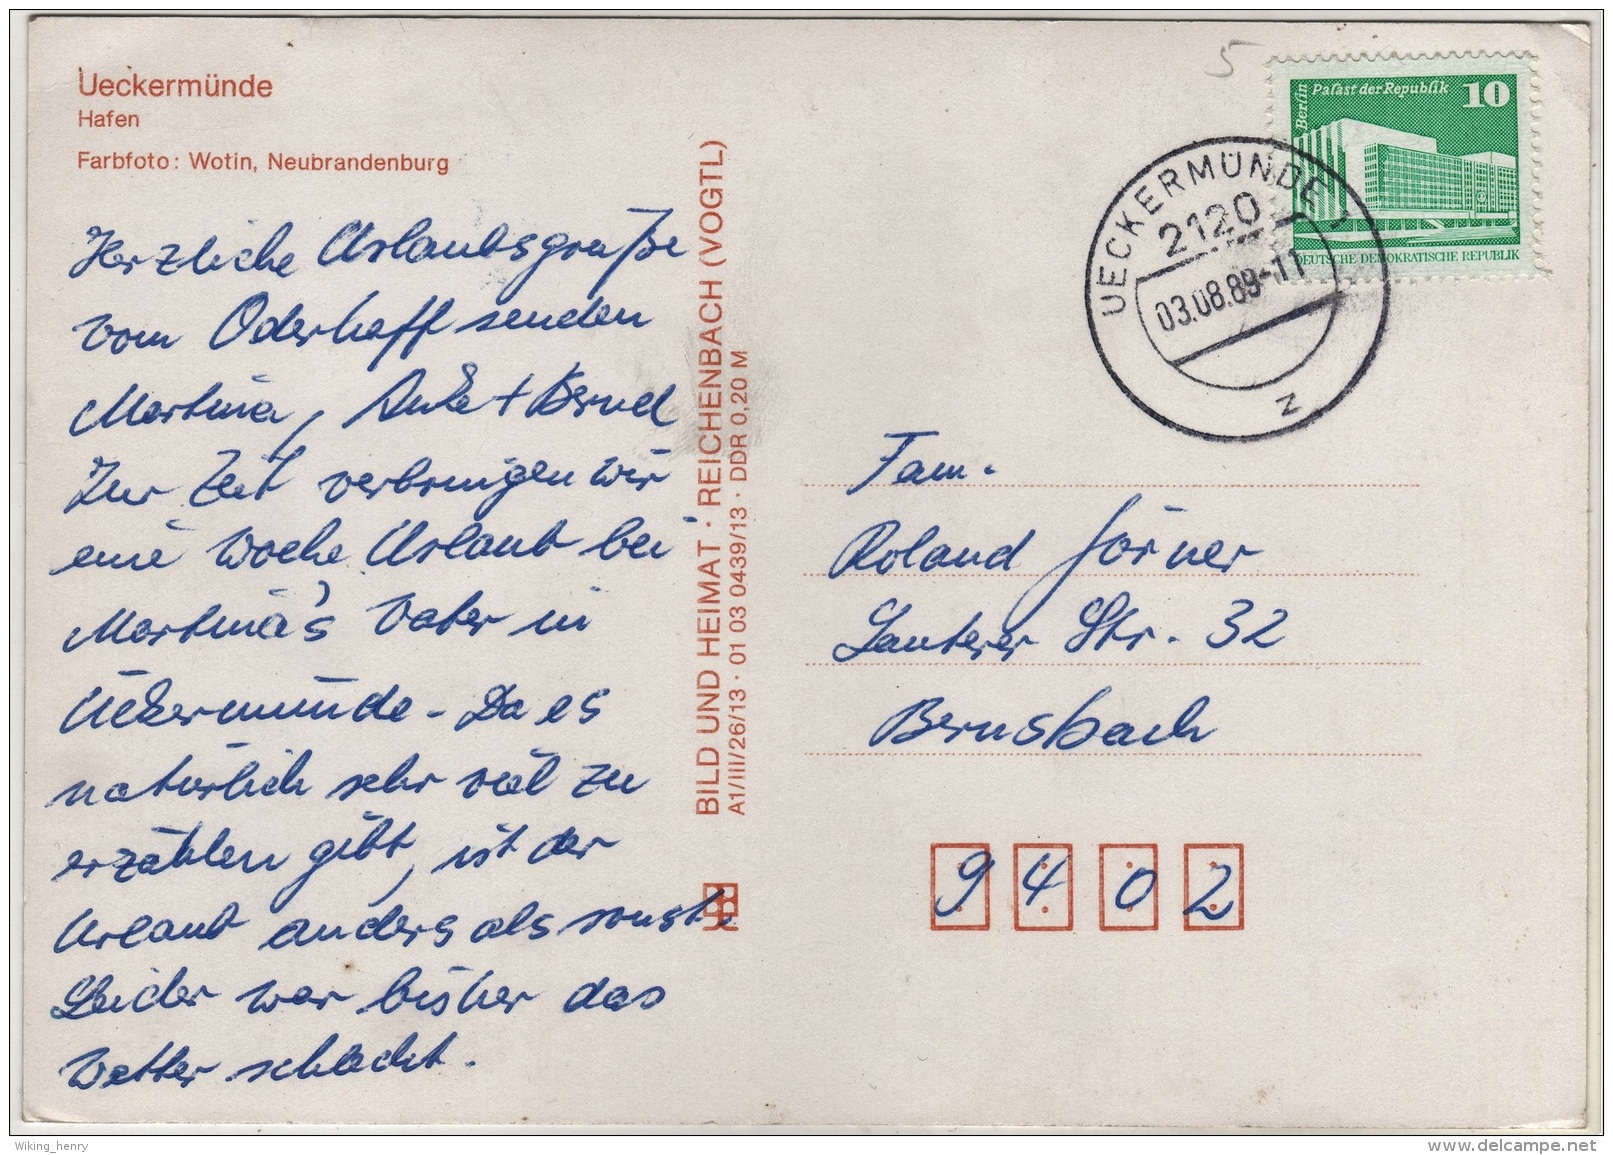 Ueckermünde
Hafen
Farbfoto: Wotin, Neubrandenburg
Herzliche Urlaubsgrüße
vom Oderhaff senden
Martina, Anke + Bernd
Zur Zeit verbringen wir
eine Woche Urlaub bei
Martina's Vater in
Ückermünde. Da es
natürlich sehr viel zu
erzählen gibt, ist der
Urlaub anders als sonst.
Leider war bisher das
Wetter schlecht.
BILD UND HEIMAT · REICHENBACH (VOGTL)
A1/III/26/13 · 01 03 0439/13 · DDR 0,20 M
5
Berlin
Palast der Republik
10
DEUTSCHE DEMOKRATISCHE REPUBLIK
UECKERMÜNDE 1
2120
03.08.89-11
z
Fam.
Roland Jörner
Lauterer Str. 32
Bernsbach
9402
Wiking_henry
www.delcampe.net